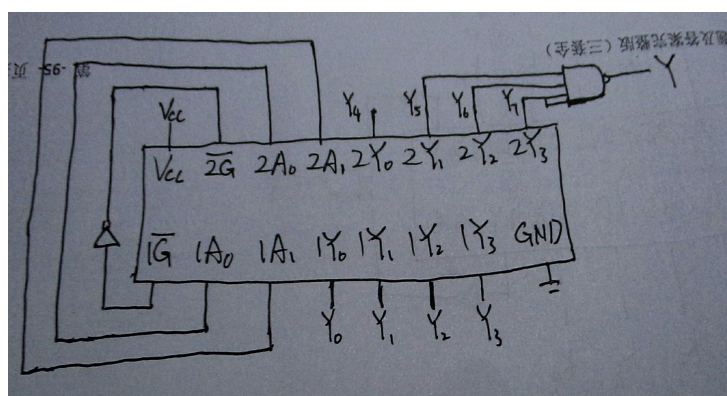 题及答案完整版（三套全）
第 -95- 页
Y
Y₄ Y₅ Y₆ Y₇
Vcc
Vcc 2G̅ 2A₀ 2A₁ 2Y₀ 2Y₁ 2Y₂ 2Y₃
1G̅ 1A₀ 1A₁ 1Y₀ 1Y₁ 1Y₂ 1Y₃ GND
Y₀ Y₁ Y₂ Y₃